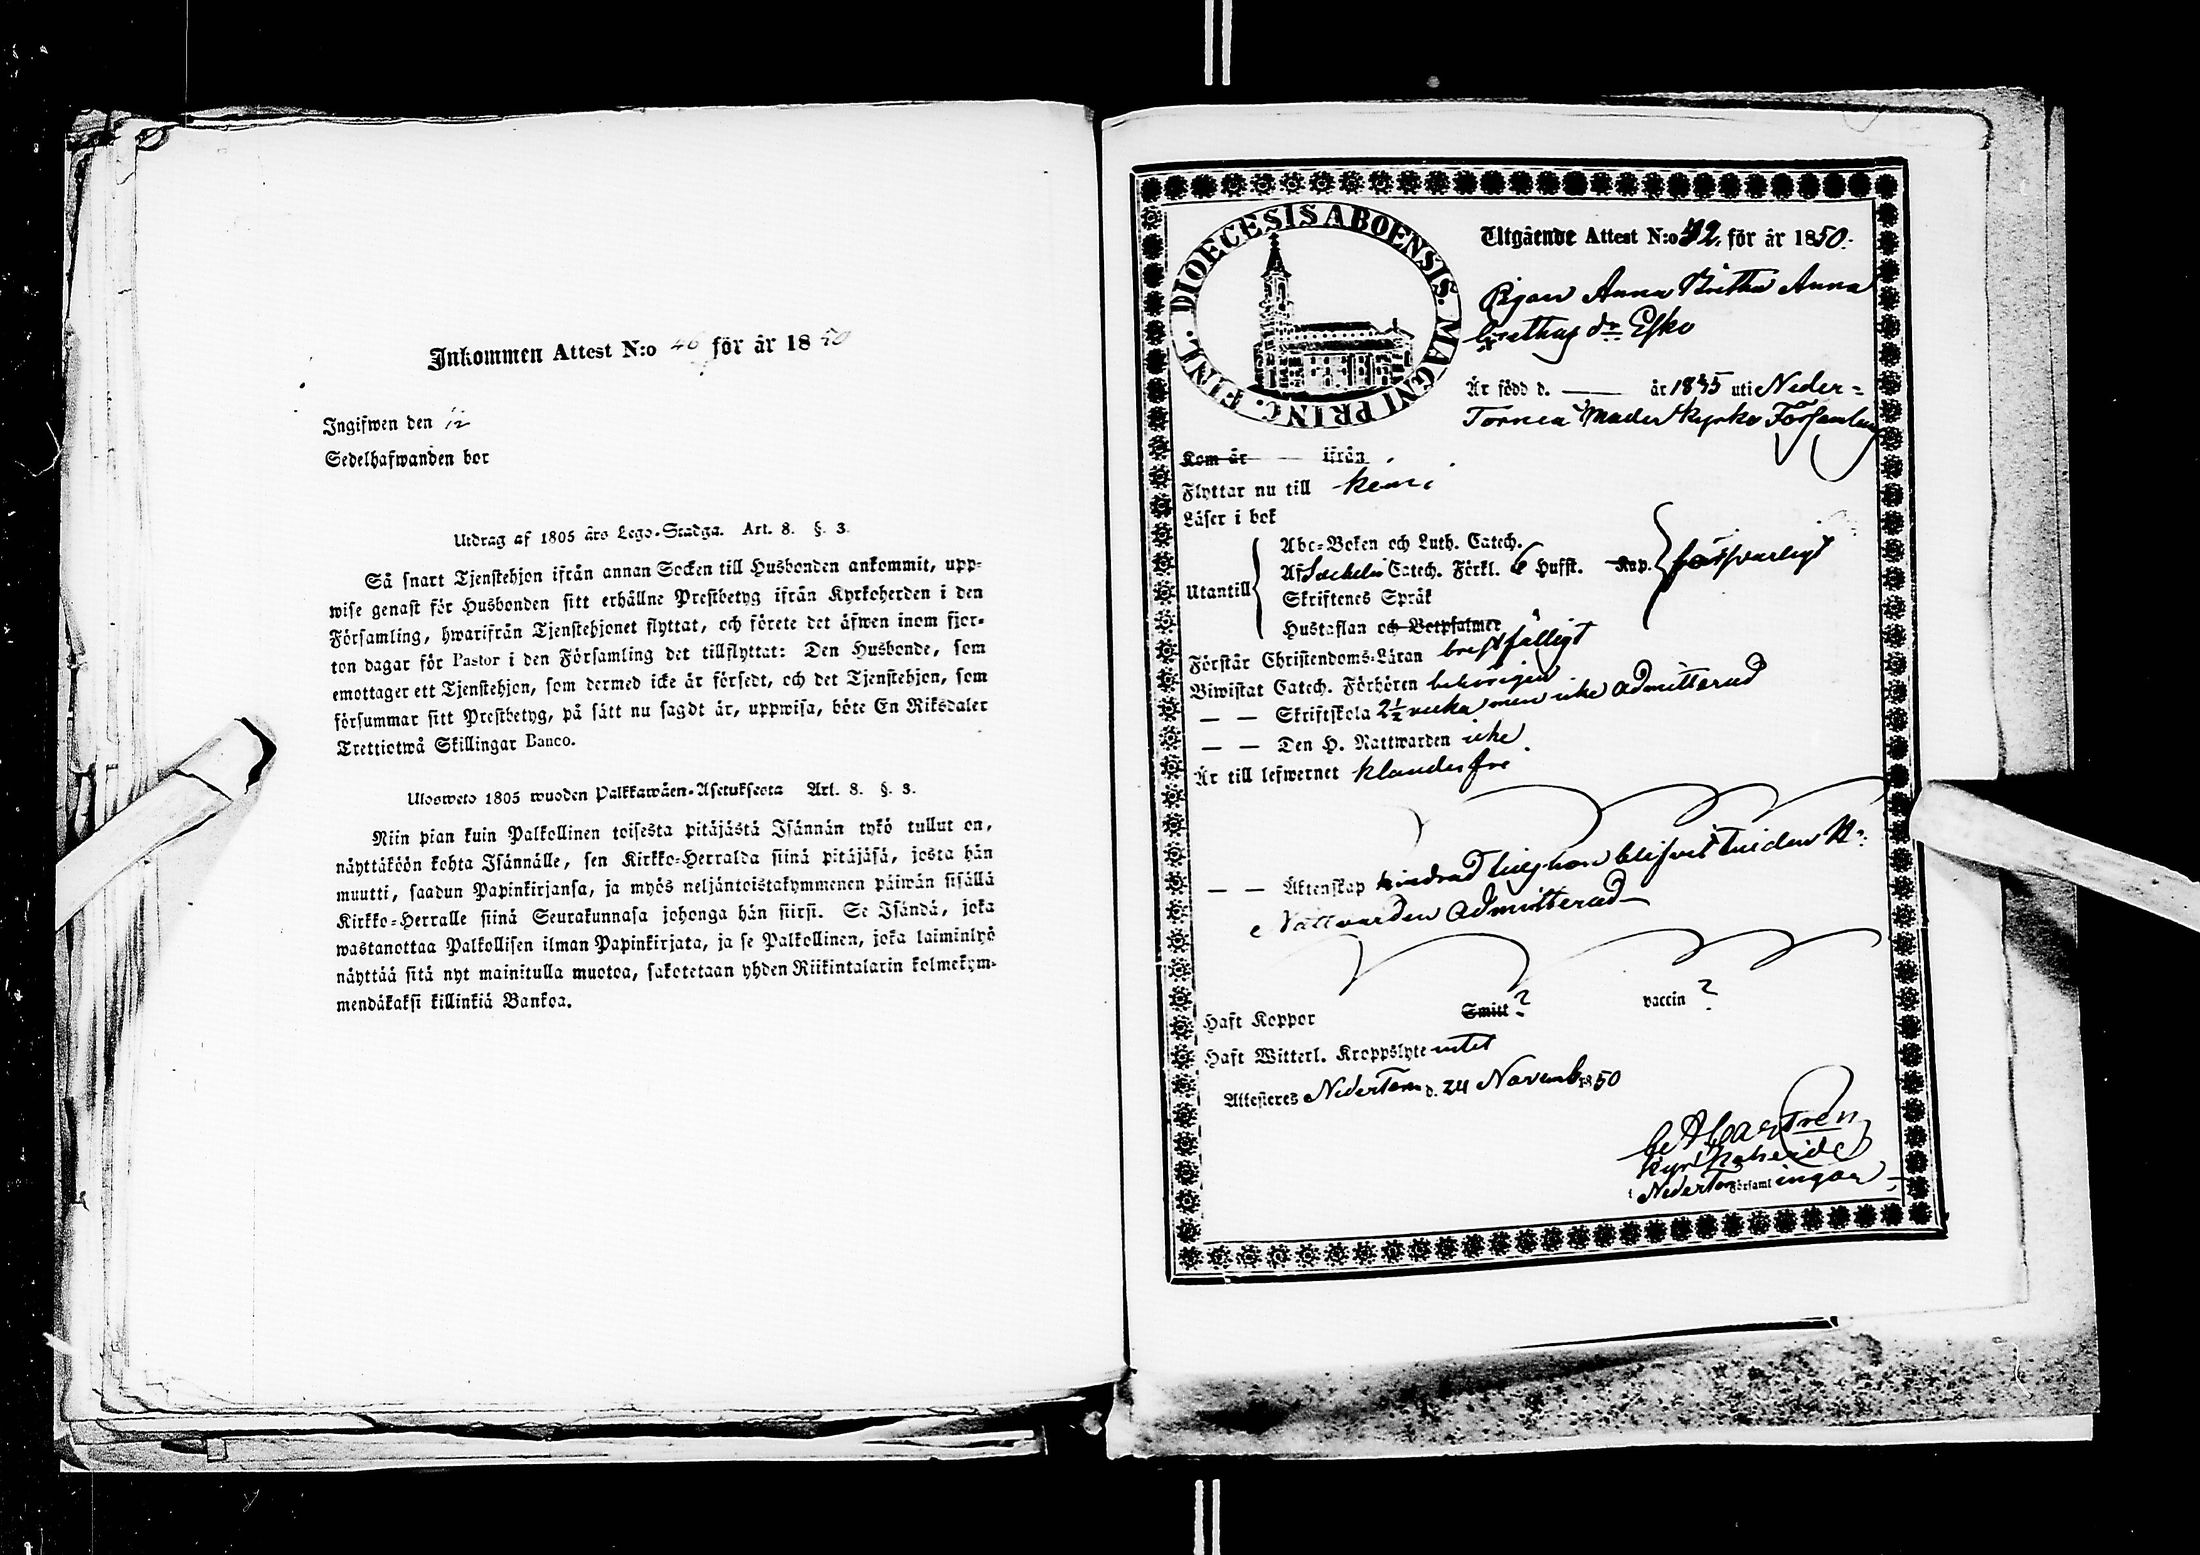 Inkommen Attest N:o 46 för år 1850
Ingifwen den 12
Sedelhafwanden bor
Utdrag af 1805 års Lego-Stadga. Art. 8. §. 3.
Så snart Tjenstehjon ifrån annan Socken till Husbonden ankommit, upp-
wise genast för Husbonden sitt erhållne Prestbetyg ifrån Kyrkoherden i den
Församling, hwarifrån Tjenstehjonet flyttat, och förete det äfwen inom fjor-
ton dagar för Pastor i den Församling det tillflyttat: Den Husbonde, som
emottager ett Tjenstehjon, som dermed icke är försedt, och det Tjenstehjon, som
försummar sitt Prestbetyg, på sätt nu sagdt är, uppwisa, böte En Riksdaler
Trettiotwå Skillingar Banco.
Ulosweto 1805 wuoden Palkkawäen-Asetuksesta Art. 8. §. 3.
Niin pian kuin Palkollinen toisesta pitäjästä Isännän tykö tullut on,
näyttäköön kohta Isännälle, sen Kirkko-Herralda siinä pitäjäsä, josta hän
muutti, saadun Papinkirjansa, ja myös neljäntoistakymmenen päiwän sisällä
Kirkko-Herralle siinä Seurakunnasa johonga hän siirsi. Se Isändä, joka
wastanottaa Palkollisen ilman Papinkirjata, ja se Palkollinen, joka laiminlyö
näyttää sitä nyt mainitulla muotoa, sakotetaan yhden Riikintalarin kolmekym-
mendäkaksi killinkiä Bankoa.
DIOECESIS ABOENSIS. MAGNI PRINC. FINL.
Utgående Attest N:o 32. för år 1850.
Pigan Anna Britha Anna
Grethas dr Esko
Är född d. — år 1835 uti Neder-
Torneå Moder kyrko Församling
Kom år — ifrån
Flyttar nu till Kemi
Läser i bok
Utantill
Abc-Boken och Luth. Catech.
Af Svebelii Catech. Förkl. 6 Hufst. Kap. försvarligt
Skriftenes Språk
Hustaflan och Botpsalmer
Förstår Christendoms-Läran bristfälligt
Biwistat Catech. Förhören behörigen
— — Skriftskola 2½ vecka men icke admitterad
— — Den H. Nattwarden icke
Är till lefwernet klanderfri
— — Äktenskap hindrad tills hon blifvit till den H:
Nattvarden admitterad
Haft Koppor Smitt ? vaccin ?
Haft Witterl. Kroppslyte intet
Attesteres NederTorn d. 24 Novemb. 1850
Castrén
Kyrkoherde
i NederTorn Församlingar